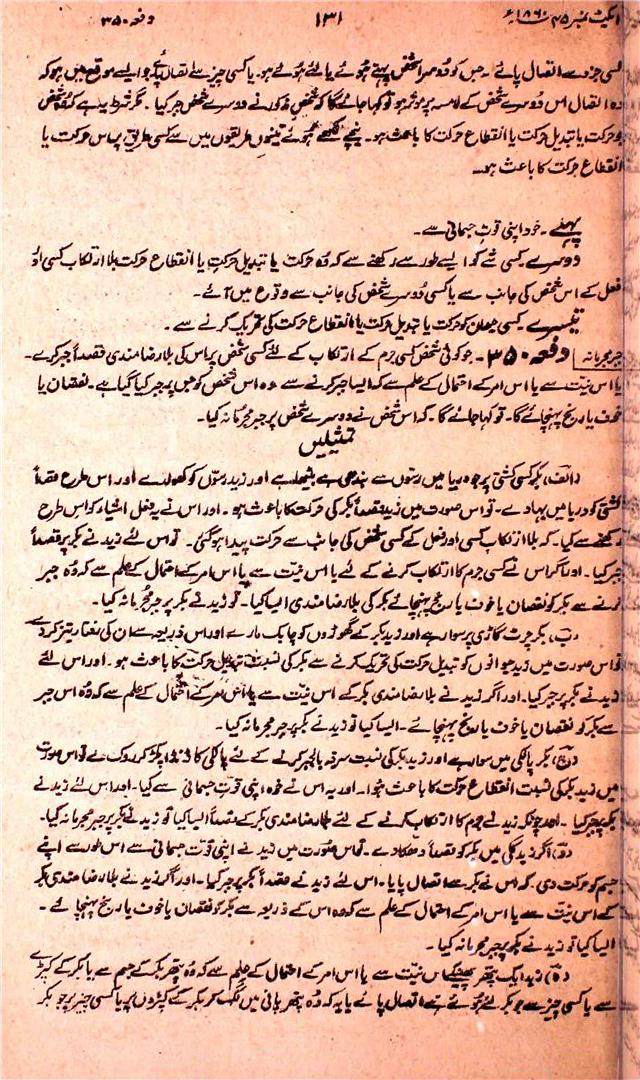 ایکٹ نمبر ۴۵ ۱۸۶۰ء ۱۳۱ دفعہ ۳۵۰
کسی جزو سے اتصال پائے۔ جس کو وہ دوسرا شخص پہنے ہوئے یا لئے ہوئے ہو۔ یا کسی چیز سے اتصال پائے جو ایسے موقع میں ہو کہ
وہ اتصال اس دوسرے شخص کے لامسہ پر موثر ہو تو کہا جائے گا کہ شخص مذکور نے دوسرے شخص پر جبر کیا۔ مگر شرط یہ ہے کہ شخص
جو حرکت یا تبدیل حرکت یا انقطاع حرکت کا باعث ہو۔ نیچے لکھے ہوئے تینوں طریقوں میں سے کسی طریق پر اس حرکت یا
انقطاع حرکت کا باعث ہو۔
پہلے۔ خود اپنی قوت جسمانی سے۔
دوسرے۔ کسی شے کو ایسے طور سے رکھنے سے کہ وہ حرکت یا تبدیل حرکت یا انقطاع حرکت بلا ارتکاب کسی اور
فعل کے اس شخص کی جانب سے یا کسی دوسرے شخص کی جانب سے وقوع میں آئے۔
تیسرے۔ کسی حیوان کو حرکت یا تبدیل حرکت یا انقطاع حرکت کی تحریک کرنے سے۔
جبر مجرمانہ دفعہ ۳۵۰۔ جو کوئی شخص کسی جرم کے ارتکاب کے لئے کسی شخص پر اس کی بلا رضامندی قصداً جبر کرے۔
یا اس نیت سے یا اس امر کے احتمال کے علم سے کہ ایسا جبر کرنے سے وہ اس شخص کو جس پر جبر کیا گیا ہے۔ نقصان یا
خوف یا رنج پہنچائے گا۔ تو کہا جائے گا۔ کہ اس شخص نے دوسرے شخص پر جبر مجرمانہ کیا۔
تمثیلیں
(الف) بکر کسی کشتی پر جو دریا میں رسوں سے بندھی ہے بیٹھا ہے اور زید رسوں کو کھول دے اور اس طرح قصداً
کشتی کو دریا میں بہا دے۔ تو اس صورت میں زید قصداً بکر کی حرکت کا باعث ہو۔ اور اس نے یہ فعل اشیاء کو اس طرح
رکھنے سے کیا۔ کہ بلا ارتکاب کسی اور فعل کے کسی شخص کی جانب سے حرکت پیدا ہو گئی۔ تو اس لئے زید نے بکر پر قصداً
جبر کیا۔ اور اگر اس نے کسی جرم کا ارتکاب کرنے کے لئے یا اس نیت سے یا اس امر کے احتمال کے علم سے کہ وہ جبر
کرنے سے بکر کو نقصان یا خوف یا رنج پہنچائے بکر کی بلا رضامندی ایسا کیا۔ تو زید نے بکر پر جبر مجرمانہ کیا۔
(ب) بکر چرٹ گاڑی پر سوار ہے اور زید بکر کے گھوڑوں کو چابک مارے اور اس ذریعہ سے ان کی رفتار تیز کر دے
تو اس صورت میں زید حیوانوں کو تبدیل حرکت کی تحریک کرنے سے بکر کی نسبت تبدیل حرکت کا باعث ہو۔ اور اس لئے
زید نے بکر پر جبر کیا۔ اور اگر زید نے بلا رضامندی بکر کے اس نیت سے یا اس امر کے احتمال کے علم سے کہ وہ اس جبر
سے بکر کو نقصان یا خوف یا رنج پہنچائے۔ ایسا کیا تو زید نے بکر پر جبر مجرمانہ کیا۔
(ج) بکر پالکی میں سوار ہے اور زید بکر کی نسبت سرقہ بالجبر کرنے کے لئے پالکی کا ڈنڈا پکڑ کر روک دے تو اس صورت
میں زید بکر کی نسبت انقطاع حرکت کا باعث ہوا۔ اور یہ اس نے خود اپنی قوت جسمانی سے کیا۔ اور اس لئے زید نے
بکر پر جبر کیا۔ اور چونکہ زید نے جرم کا ارتکاب کرنے کے لئے بلا رضامندی بکر کے قصداً ایسا کیا تو زید نے بکر پر جبر مجرمانہ کیا۔
(د) اگر زید گلی میں بکر کو قصداً دھکا دے۔ تو اس صورت میں زید نے اپنی قوت جسمانی سے اس طور سے اپنے
جسم کو حرکت دی۔ کہ اس نے بکر سے اتصال پایا۔ اس لئے زید نے قصداً بکر پر جبر کیا۔ اور اگر زید نے بلا رضامندی بکر
کے اس نیت سے یا اس امر کے احتمال کے علم سے کہ وہ اس کے ذریعہ سے بکر کو نقصان یا خوف یا رنج پہنچائے۔
ایسا کیا تو زید نے بکر پر جبر مجرمانہ کیا۔
(ہ) زید ایک پتھر پھینکے اس نیت سے یا اس امر کے احتمال کے علم سے کہ وہ پتھر بکر کے جسم سے یا بکر کے کپڑے
سے یا کسی چیز سے جو بکر لئے ہوئے ہے اتصال پائے یا یہ کہ وہ پتھر پانی میں لگ کر بکر کے کپڑوں پر یا کسی چیز پر جو بکر